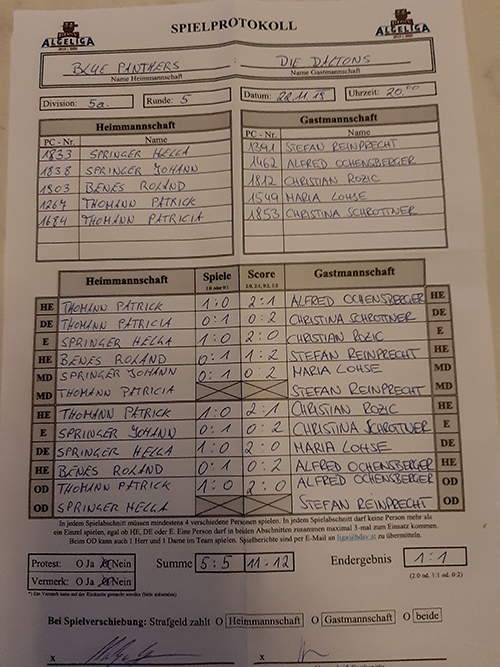 ALGELIGA SPIELPROTOKOLL ALGELIGA
BLUE PANTHERS : DIE DALTONS
Name Heimmannschaft Name Gastmannschaft
Division: 5a. Runde: 5 Datum: 22.11.19 Uhrzeit: 20.00
Heimmannschaft Gastmannschaft
PC - Nr. Name PC - Nr. Name
1833 SPRINGER HELLA 1391 STEFAN REINPRECHT
1838 SPRINGER JOHANN 1462 ALFRED OCHENSBERGER
1803 BENES ROLAND 1812 CHRISTIAN ROZIC
1267 THOMANN PATRICK 1549 MARIA LOHSE
1684 THOMANN PATRICIA 1853 CHRISTINA SCHROTTNER
Heimmannschaft Spiele Score Gastmannschaft
1:0 oder 0:1 2:0, 2:1, 0:2, 1:2
HE THOMANN PATRICK 1:0 2:1 ALFRED OCHENSBERGER HE
DE THOMANN PATRICIA 0:1 0:2 CHRISTINA SCHROTTNER DE
E SPRINGER HELLA 1:0 2:0 CHRISTIAN ROZIC E
HE BENES ROLAND 0:1 1:2 STEFAN REINPRECHT HE
MD SPRINGER JOHANN 0:1 0:2 MARIA LOHSE MD
MD THOMANN PATRICIA STEFAN REINPRECHT MD
HE THOMANN PATRICK 1:0 2:1 CHRISTIAN ROZIC HE
E SPRINGER JOHANN 0:1 0:2 CHRISTINA SCHROTTNER E
DE SPRINGER HELLA 1:0 2:0 MARIA LOHSE DE
HE BENES ROLAND 0:1 0:2 ALFRED OCHENSBERGER HE
OD THOMANN PATRICK 1:0 2:0 ALFRED OCHENSBERGER OD
OD SPRINGER HELLA STEFAN REINPRECHT OD
In jedem Spielabschnitt müssen mindestens 4 verschiedene Personen spielen. In jedem Spielabschnitt darf keine Person mehr als
ein Einzel spielen, egal ob HE, DE oder E. Eine Person darf in beiden Abschnitten zusammen maximal 3-mal zum Einsatz kommen.
Beim OD kann auch 1 Herr und 1 Dame im Team spielen. Spielberichte sind per E-Mail an liga@bdav.at zu übermitteln.
Protest: O Ja Nein Summe 5:5 11.12 Endergebnis 1:1
Vermerk: O Ja Nein (2:0 od. 1:1 od. 0:2)
*) Ein Vermerk kann auf der Rückseite gemacht werden (bitte ankreuzen)
Bei Spielverschiebung: Strafgeld zahlt O Heimmannschaft O Gastmannschaft O beide
x x